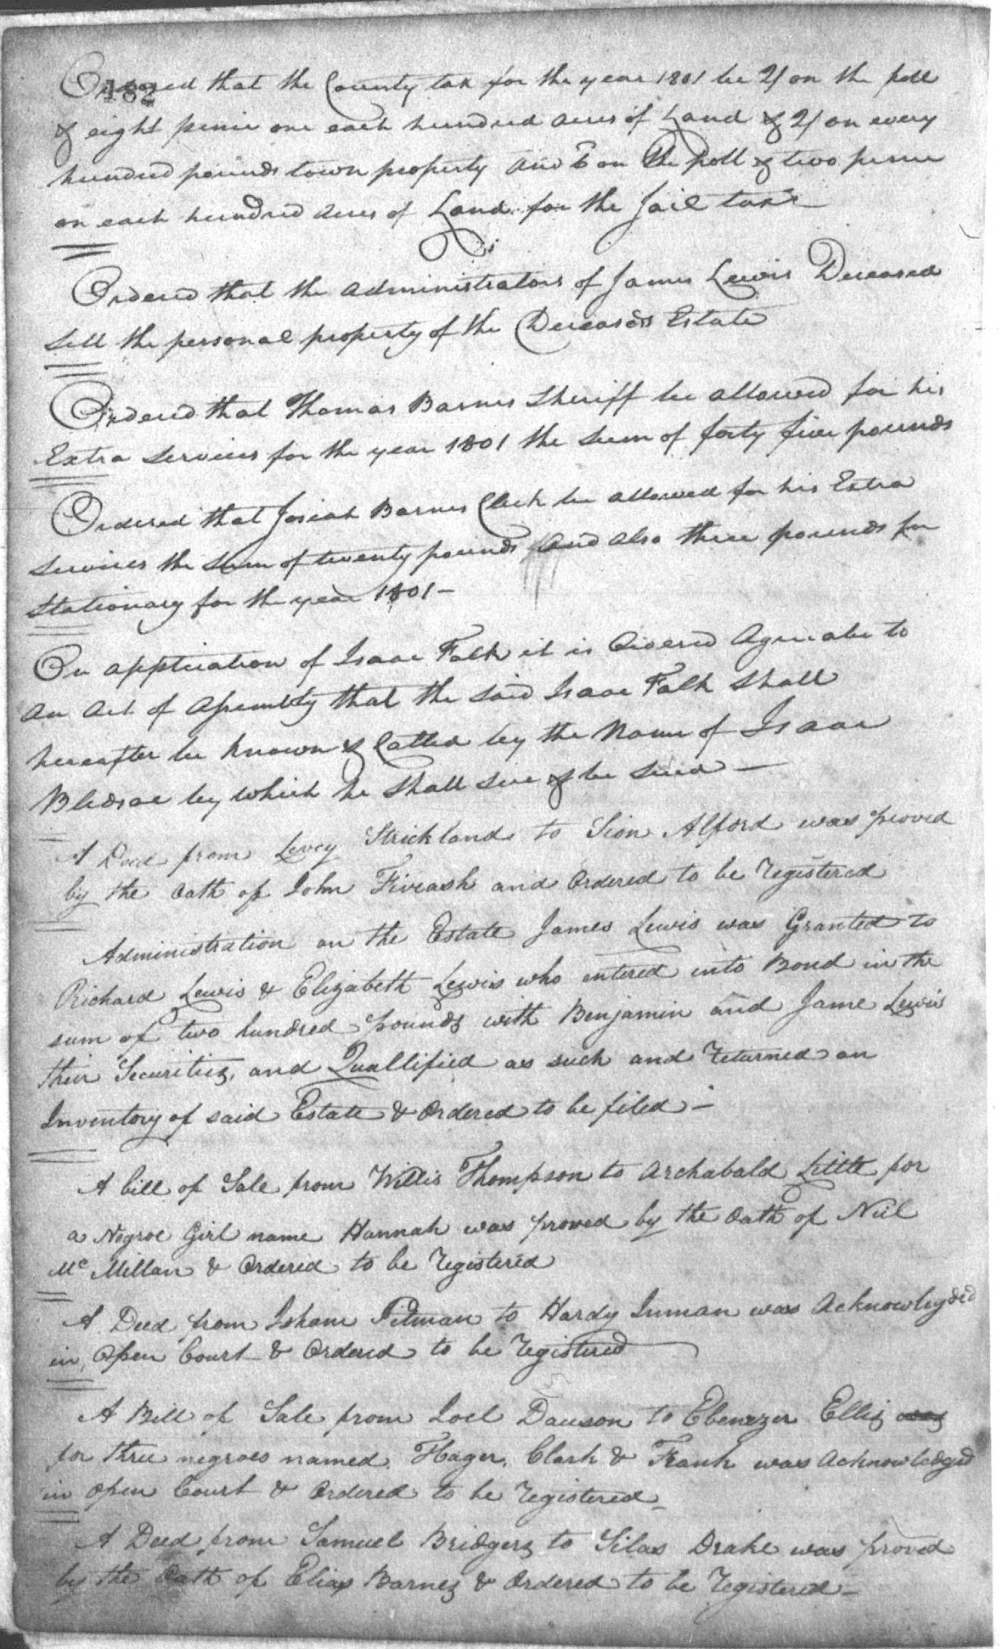 182
Ordered that the County tax for the year 1801 be 2/ on the poll
& eight pence one each hundred acres of Land & 2/ on every
hundred pounds town property and on the poll & two pence
on each hundred acres of Land for the Jail tax
Ordered that the administrators of James Lewis Deceased
Sell the personal property of the Deceaseds Estate
Ordered that Thomas Barnes Sheriff be allowed for his
Extra Services for the year 1801 the Sum of forty five pounds
Ordered that Josiah Barnes Clerk be allowed for his Extra
Services the Sum of twenty pounds and also three pounds for
Stationary for the year 1801 —
On application of Isaac Falk it is Ordered Agreeable to
an Act of Assembly that the said Isaac Falk Shall
hereafter be known & Called by the Name of Isaac
Bledsoe by which he Shall Sue & be Sued —
A Deed from Levey Strickland to Sion Alford was proved
by the Oath of John Fiveash and Ordered to be Registered
Administration on the Estate James Lewis was Granted to
Richard Lewis & Elizabeth Lewis who entered into Bond in the
sum of two hundred pounds with Benjamin and Jame Lewis
their Securities, and Quallified as such and returned an
Inventory of said Estate & Ordered to be filed —
A bill of Sale from Willis Thompson to Archabald Little for
a Negroe Girl name Hannah was proved by the Oath of Neil
Mc Millan & Ordered to be registered
A Deed from Isham Pitman to Hardy Inman was Acknowlegded
in Open Court & Ordered to be registered
A Bill of Sale from Joel Dawson to Ebenezer Ellis was
for three negroes named Hager, Clark & Frank was Acknowledged
in Open Court & Ordered to be registered —
A Deed from Samuel Bridgers to Silas Drake was proved
by the Oath of Elias Barnes & Ordered to be Registered —